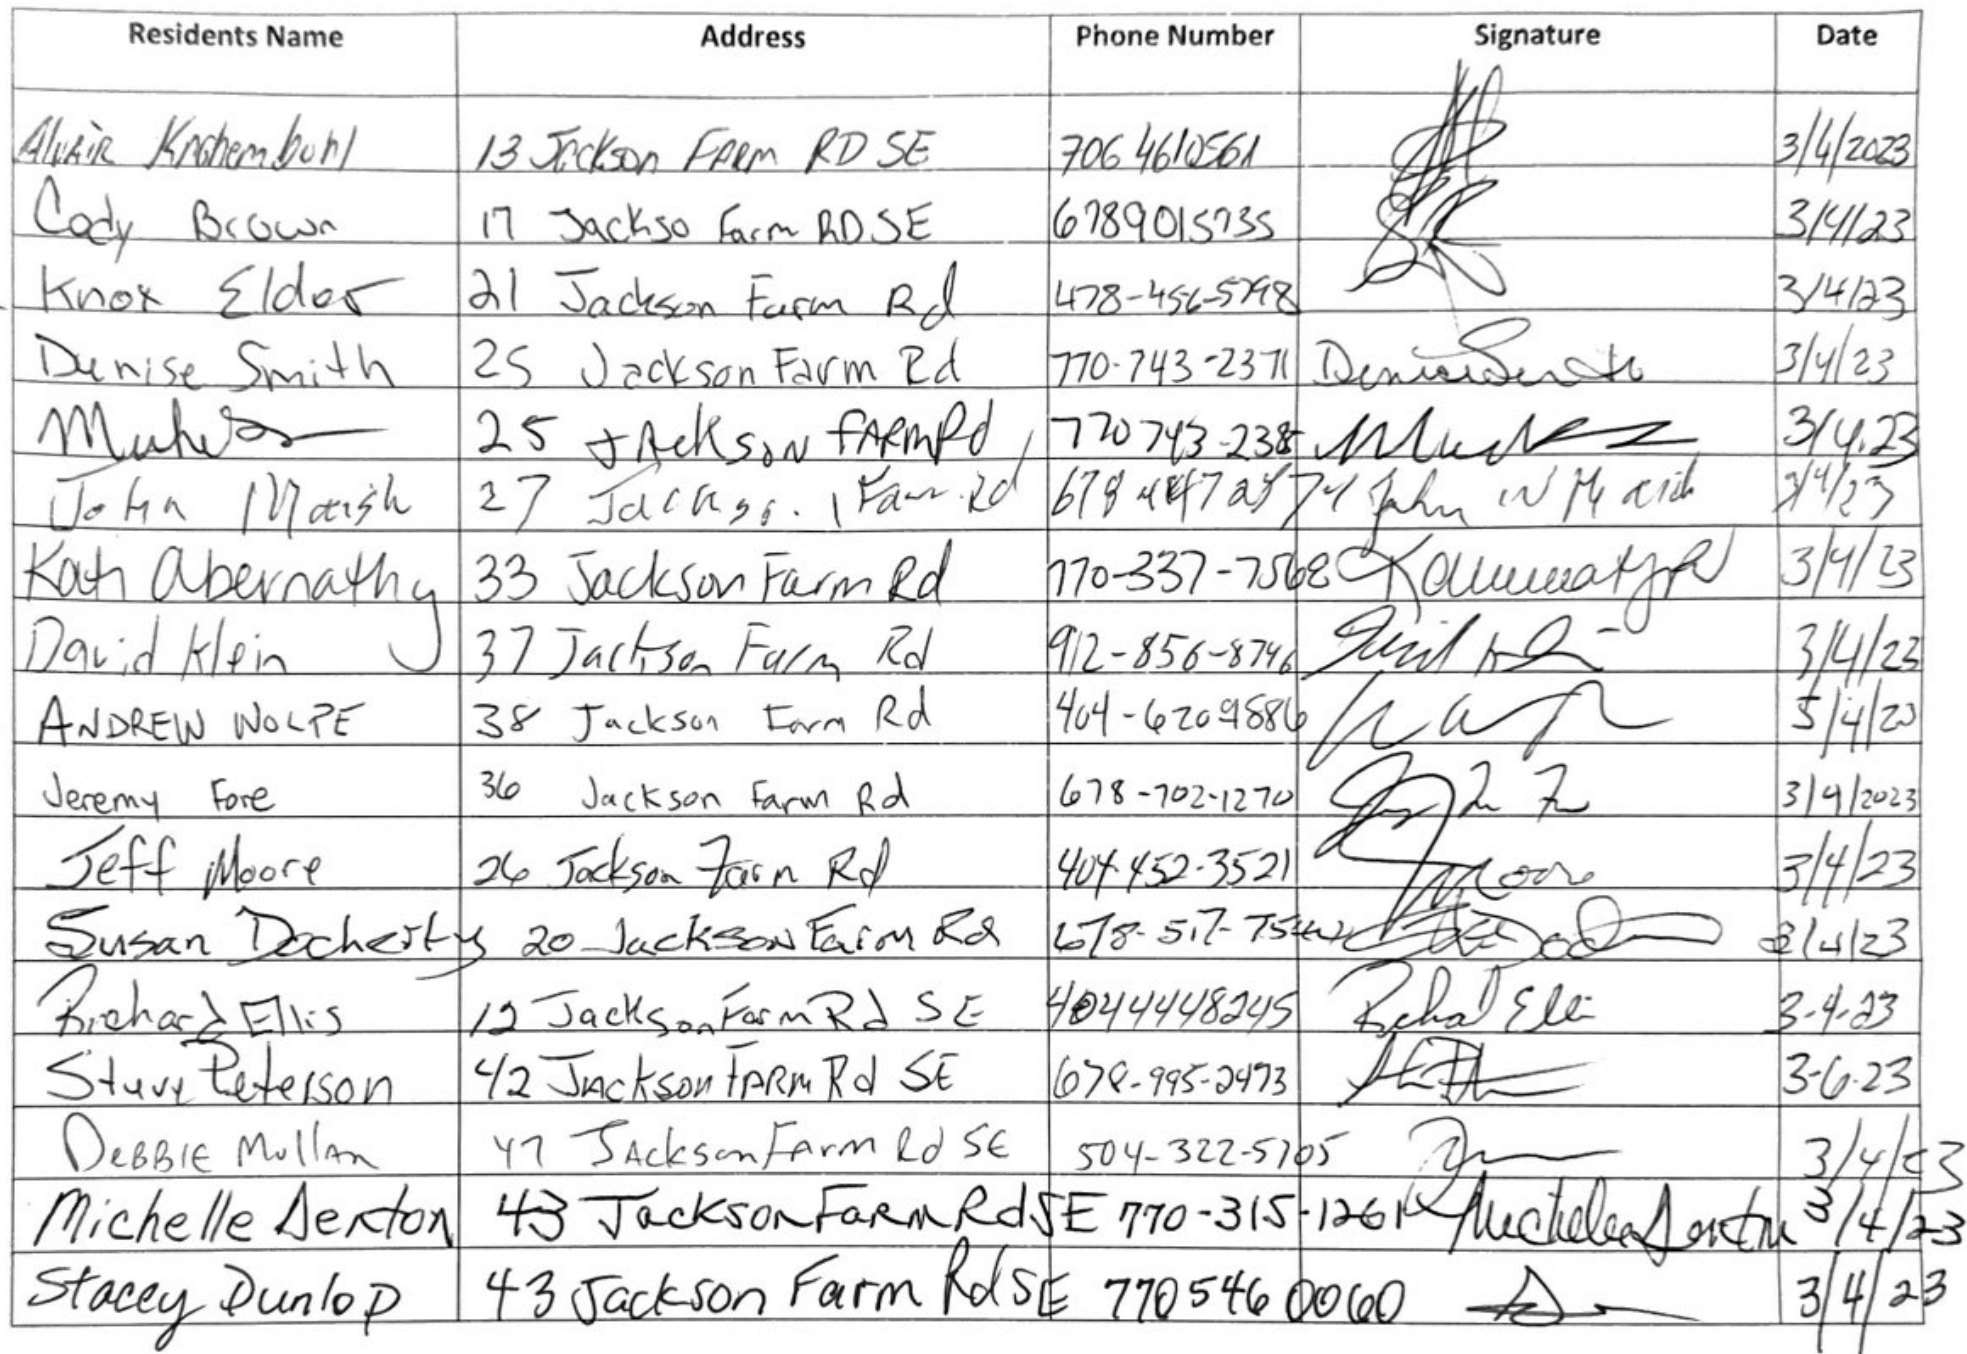 Residents Name Address Phone Number Signature Date
13 Jackson Farm RD SE 706 4610561 3/4/2023
Cody Brown 17 Jackso Farm RD SE 6789015735 3/4/23
Knox Elder 21 Jackson Farm Rd 478-456-5798 3/4/23
Denise Smith 25 Jackson Farm Rd 770-743-2371 Denise Smith 3/4/23
25 JAckson FARM Rd 3/4.23
John Marsh 27 Farm Rd John W Marsh 3/4/23
Kath Abernathy 33 Jackson Farm Rd 770-337-7568 3/4/23
David Klein 37 Jackson Farm Rd 912-856-8746 3/4/23
ANDREW WOLPE 38 Jackson Farm Rd 404-6209886
Jeremy Fore 36 Jackson Farm Rd 678-702-1270
Jeff Moore 26 Jackson Farm Rd 404-452-3521 Moore 3/4/23
Susan Docherty 20 Jackson Farm Rd
Richard Ellis 12 Jackson Farm Rd SE 4044448245 3-4-23
Steve Peterson 42 JAckson FARM Rd SE 678-995-2473 3-6-23
DEBBIE Mullan 47 JAckson Farm Rd SE 504-322-5705 3/4/23
Michelle Denton 43 Jackson FaRm Rd SE 770-315-1261 Michelle Denton 3/4/23
Stacey Dunlop 43 Jackson Farm Rd SE 770 546 0060 3/4/23